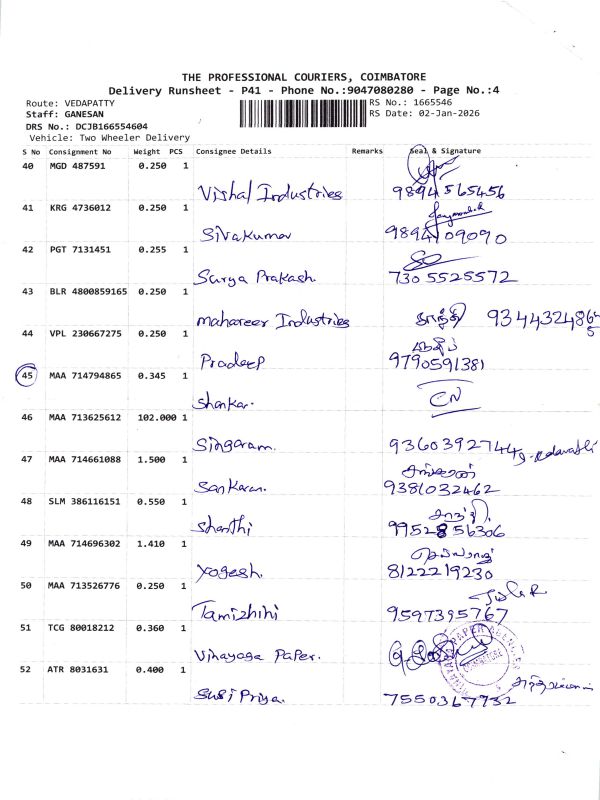 THE PROFESSIONAL COURIERS, COIMBATORE
Delivery Runsheet - P41 - Phone No.:9047080280 - Page No.:4
Route: VEDAPATTY RS No.: 1665546
Staff: GANESAN RS Date: 02-Jan-2026
DRS No.: DCJB166554604
Vehicle: Two Wheeler Delivery
S No Consignment No Weight PCS Consignee Details Remarks Seal & Signature
40 MGD 487591 0.250 1
Vishal Industries 9894565456
41 KRG 4736012 0.250 1
Sivakumar 9894109090
42 PGT 7131451 0.255 1
Surya Prakash. 7305525572
43 BLR 4800859165 0.250 1
mahaveer Industries காந்தி
44 VPL 230667275 0.250 1
Pradeep 9790591381
45 MAA 714794865 0.345 1
Shankar. CN
46 MAA 713625612 102.000 1
Singaram. 9360392744
47 MAA 714661088 1.500 1
Sankaran. 9381032462
48 SLM 386116151 0.550 1
Shanthi 9952856306
49 MAA 714696302 1.410 1
Yogesh. 8122219230
50 MAA 713526776 0.250 1
Tamizhini 9597395767
51 TCG 80018212 0.360 1
Vinayaga Paper.
52 ATR 8031631 0.400 1
Susi Priya. 7550367732